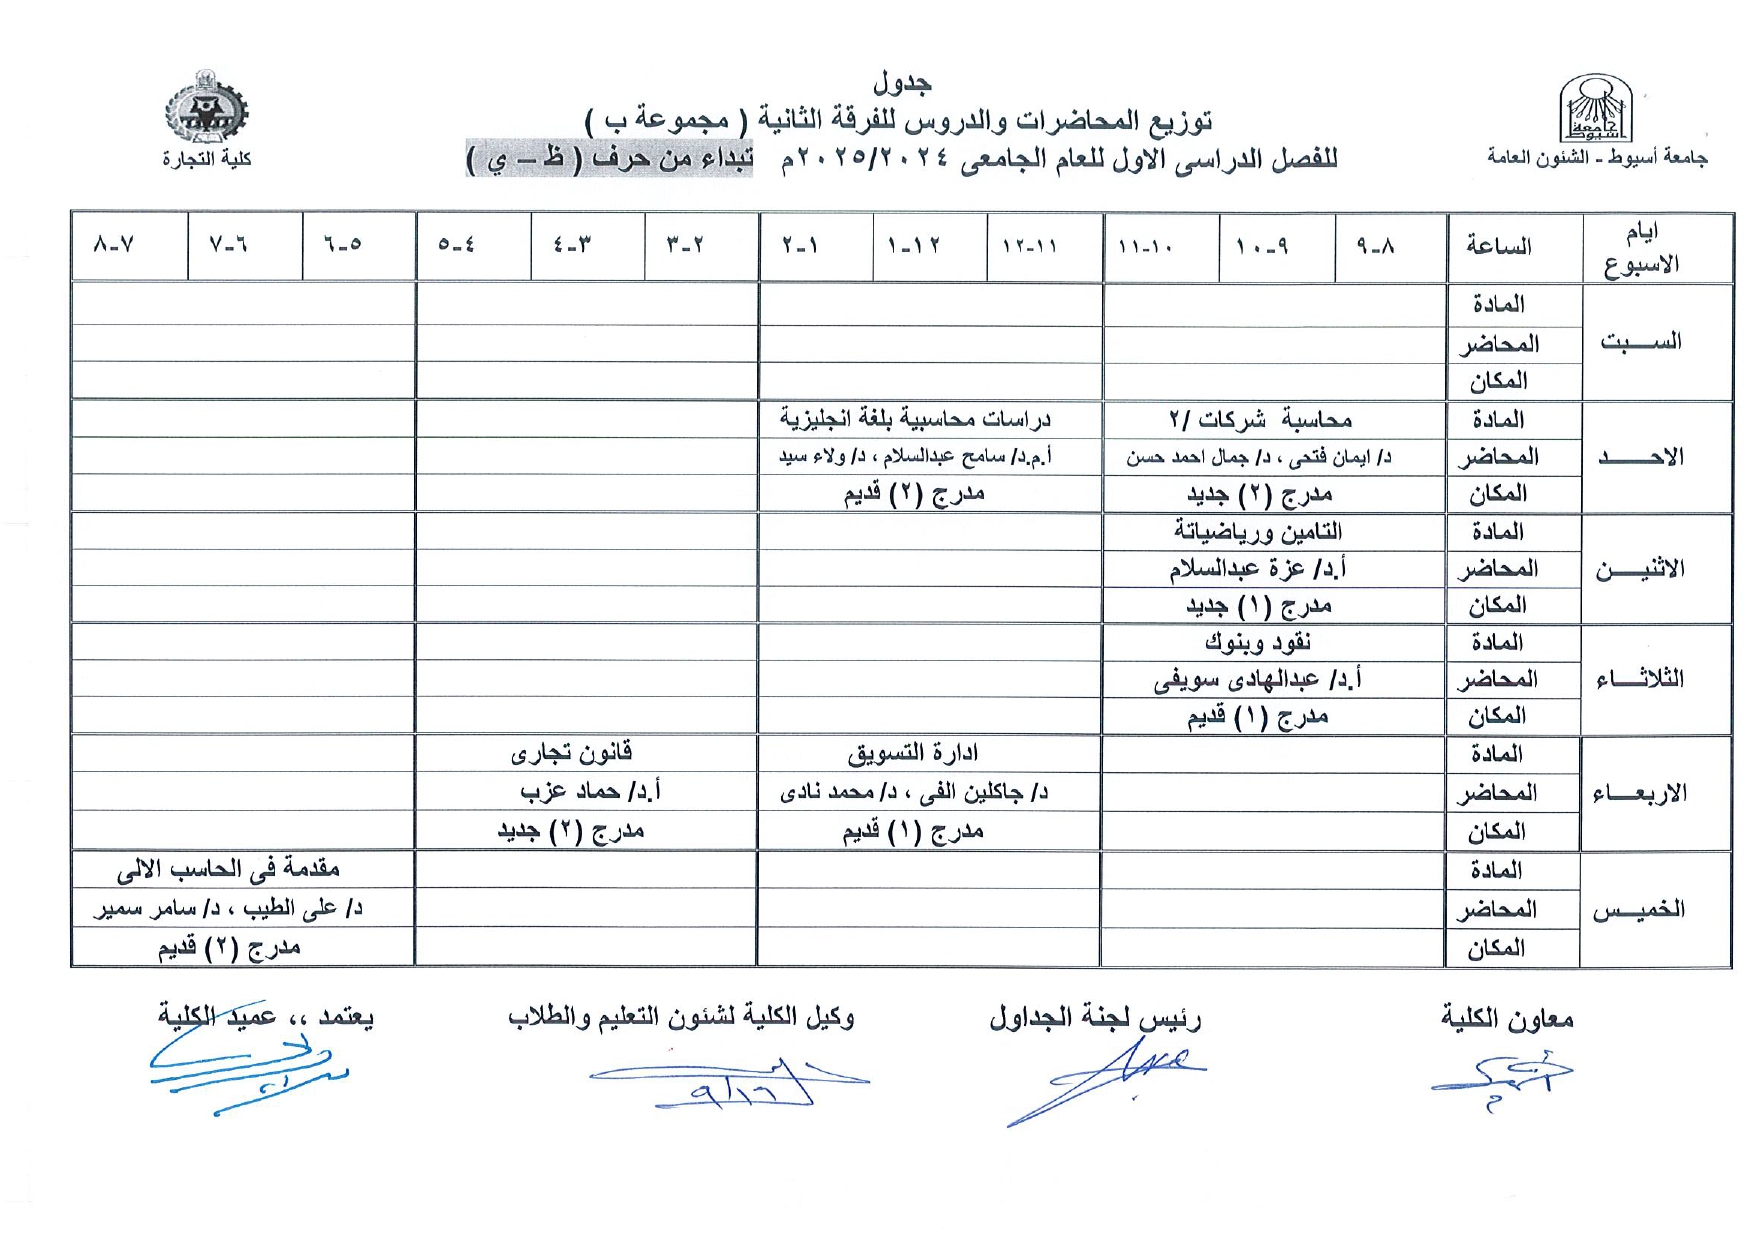 جدول
توزيع المحاضرات والدروس للفرقة الثانية ( مجموعة ب )
للفصل الدراسى الاول للعام الجامعى ٢٠٢٥/٢٠٢٤م تبداء من حرف ( ظ – ي )
جامعة أسيوط
جامعة أسيوط - الشئون العامة
كلية التجارة
ايام الاسبوع الساعة ٨-٩ ٩-١٠ ١٠-١١ ١١-١٢ ١٢-١ ١-٢ ٢-٣ ٣-٤ ٤-٥ ٥-٦ ٦-٧ ٧-٨
السبت
المادة
المحاضر
المكان
الاحد
المادة محاسبة شركات /٢ دراسات محاسبية بلغة انجليزية
المحاضر د/ ايمان فتحى ، د/ جمال احمد حسن أ.م.د/ سامح عبدالسلام ، د/ ولاء سيد
المكان مدرج (٢) جديد مدرج (٢) قديم
الاثنين
المادة التامين ورياضياتة
المحاضر أ.د/ عزة عبدالسلام
المكان مدرج (١) جديد
الثلاثاء
المادة نقود وبنوك
المحاضر أ.د/ عبدالهادى سويفى
المكان مدرج (١) قديم
الاربعاء
المادة ادارة التسويق قانون تجارى
المحاضر د/ جاكلين الفى ، د/ محمد نادى أ.د/ حماد عزب
المكان مدرج (١) قديم مدرج (٢) جديد
الخميس
المادة مقدمة فى الحاسب الالى
المحاضر د/ على الطيب ، د/ سامر سمير
المكان مدرج (٢) قديم
معاون الكلية رئيس لجنة الجداول وكيل الكلية لشئون التعليم والطلاب يعتمد ،، عميد الكلية
٩/١٦